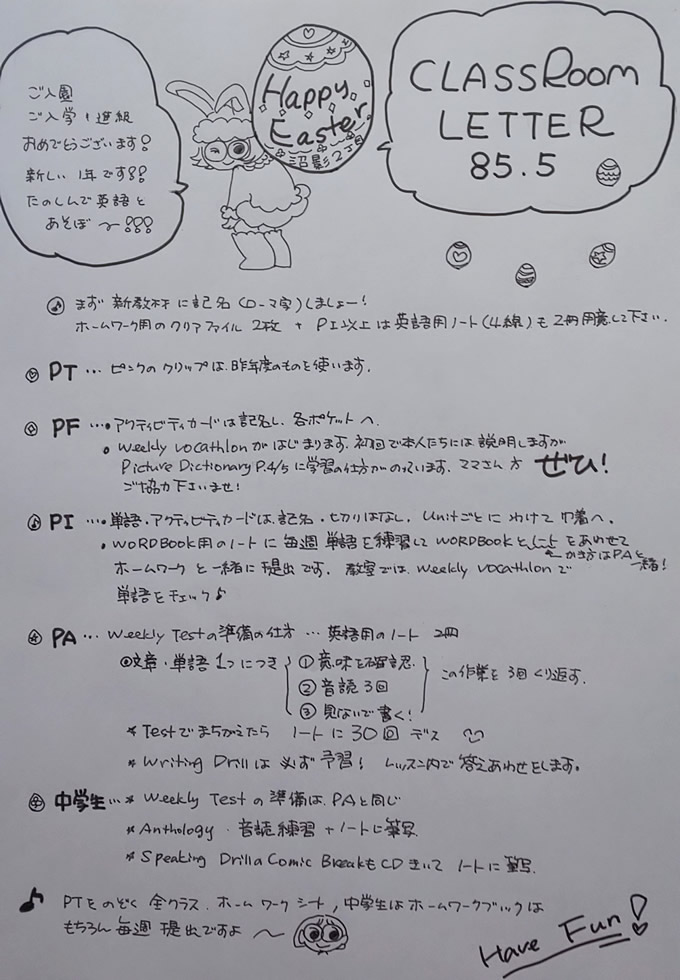 ご入園
ご入学・進級
おめでとうございます!
新しい1年です!!
たのしんで英語と
あそぼ〜!!!
Happy
Easter
沼影2丁目
CLASSRoom
LETTER
85.5
♪ まず 新教材に記名(ローマ字)しましょー!
ホームワーク用のクリアファイル 2枚 + PI以上は英語用ノート(4線)も2冊用意して下さい.
PT … ピンクのクリップは、昨年度のものを使います.
PF …・アクティビティカードは記名し、各ポケットへ.
・Weekly vocathlonがはじまります.初回で本人たちには説明しますが
Picture Dictionary P.4/5に学習の仕方がのっています.ママさん方 ぜひ!
ご協力下さいませ!
♪ PI …・単語・アクティビティカードは、記名・切りはなし、Unitごとにわけて巾着へ.
・WORDBook用のノートに毎週単語を練習して WORDBookとノートをあわせて
←かき方はPAと一緒!
ホームワークと一緒に提出です. 教室では、Weekly vocathlonで
単語をチェック♪
PA … Weekly Testの準備の仕方 … 英語用のノート 2冊
文章・単語 1つにつき
① 意味を確認.
② 音読 3回
③ 見ないで書く!
この作業を 3回くり返す.
* Testでまちがえたら ノートに30回 デス
* Writing Drillは必ず予習! レッスン内で答えあわせをします。
中学生…* Weekly Testの準備は、PAと同じ
* Anthology・音読練習+ノートに筆写.
* Speaking DrillaComic BreakもCDきいて ノートに筆写.
♪ PTをのぞく全クラス、ホームワークシート,中学生はホームワークブックは
もちろん毎週提出ですよ〜
Have Fun!